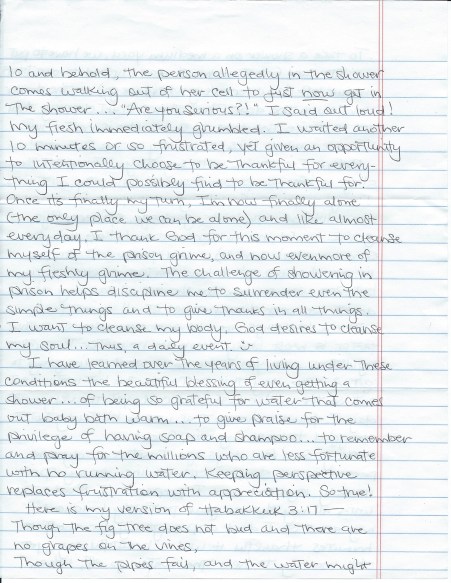 lo and behold, the person allegedly in the shower
comes walking out of her cell to just now get in
the shower... "Are you surious?!" I said out loud!
my flesh immediately grumbled. I waited another
10 minutes or so frustrated, yet given an opportunity
to intentionally choose to be thankful for every-
thing I could possibly find to be thankful for.
Once its finally my turn, I'm now finally alone
(the only place we can be alone) and like almost
everyday, I thank God for this moment to cleanse
myself of the prison grime, and now evenmore of
my fleshly grime. The challenge of showering in
prison helps discipline me to surrender even the
simple things and to give thanks in all things.
I want to cleanse my body, God desires to cleanse
my soul... Thus, a daily event. :)
I have learned over the years of living under these
conditions the beautiful blessing of even getting a
shower... of being so grateful for water that comes
out baby bath warm... to give praise for the
privilege of having soap and shampoo... to remember
and pray for the millions who are less fortunate
with no running water. Keeping perspective
replaces frustration with appreciation. So true!
Here is my version of Habakkuk 3:17—
Though the fig-tree does not bud and there are
no grapes on the vines,
Though the pipes fail, and the water might